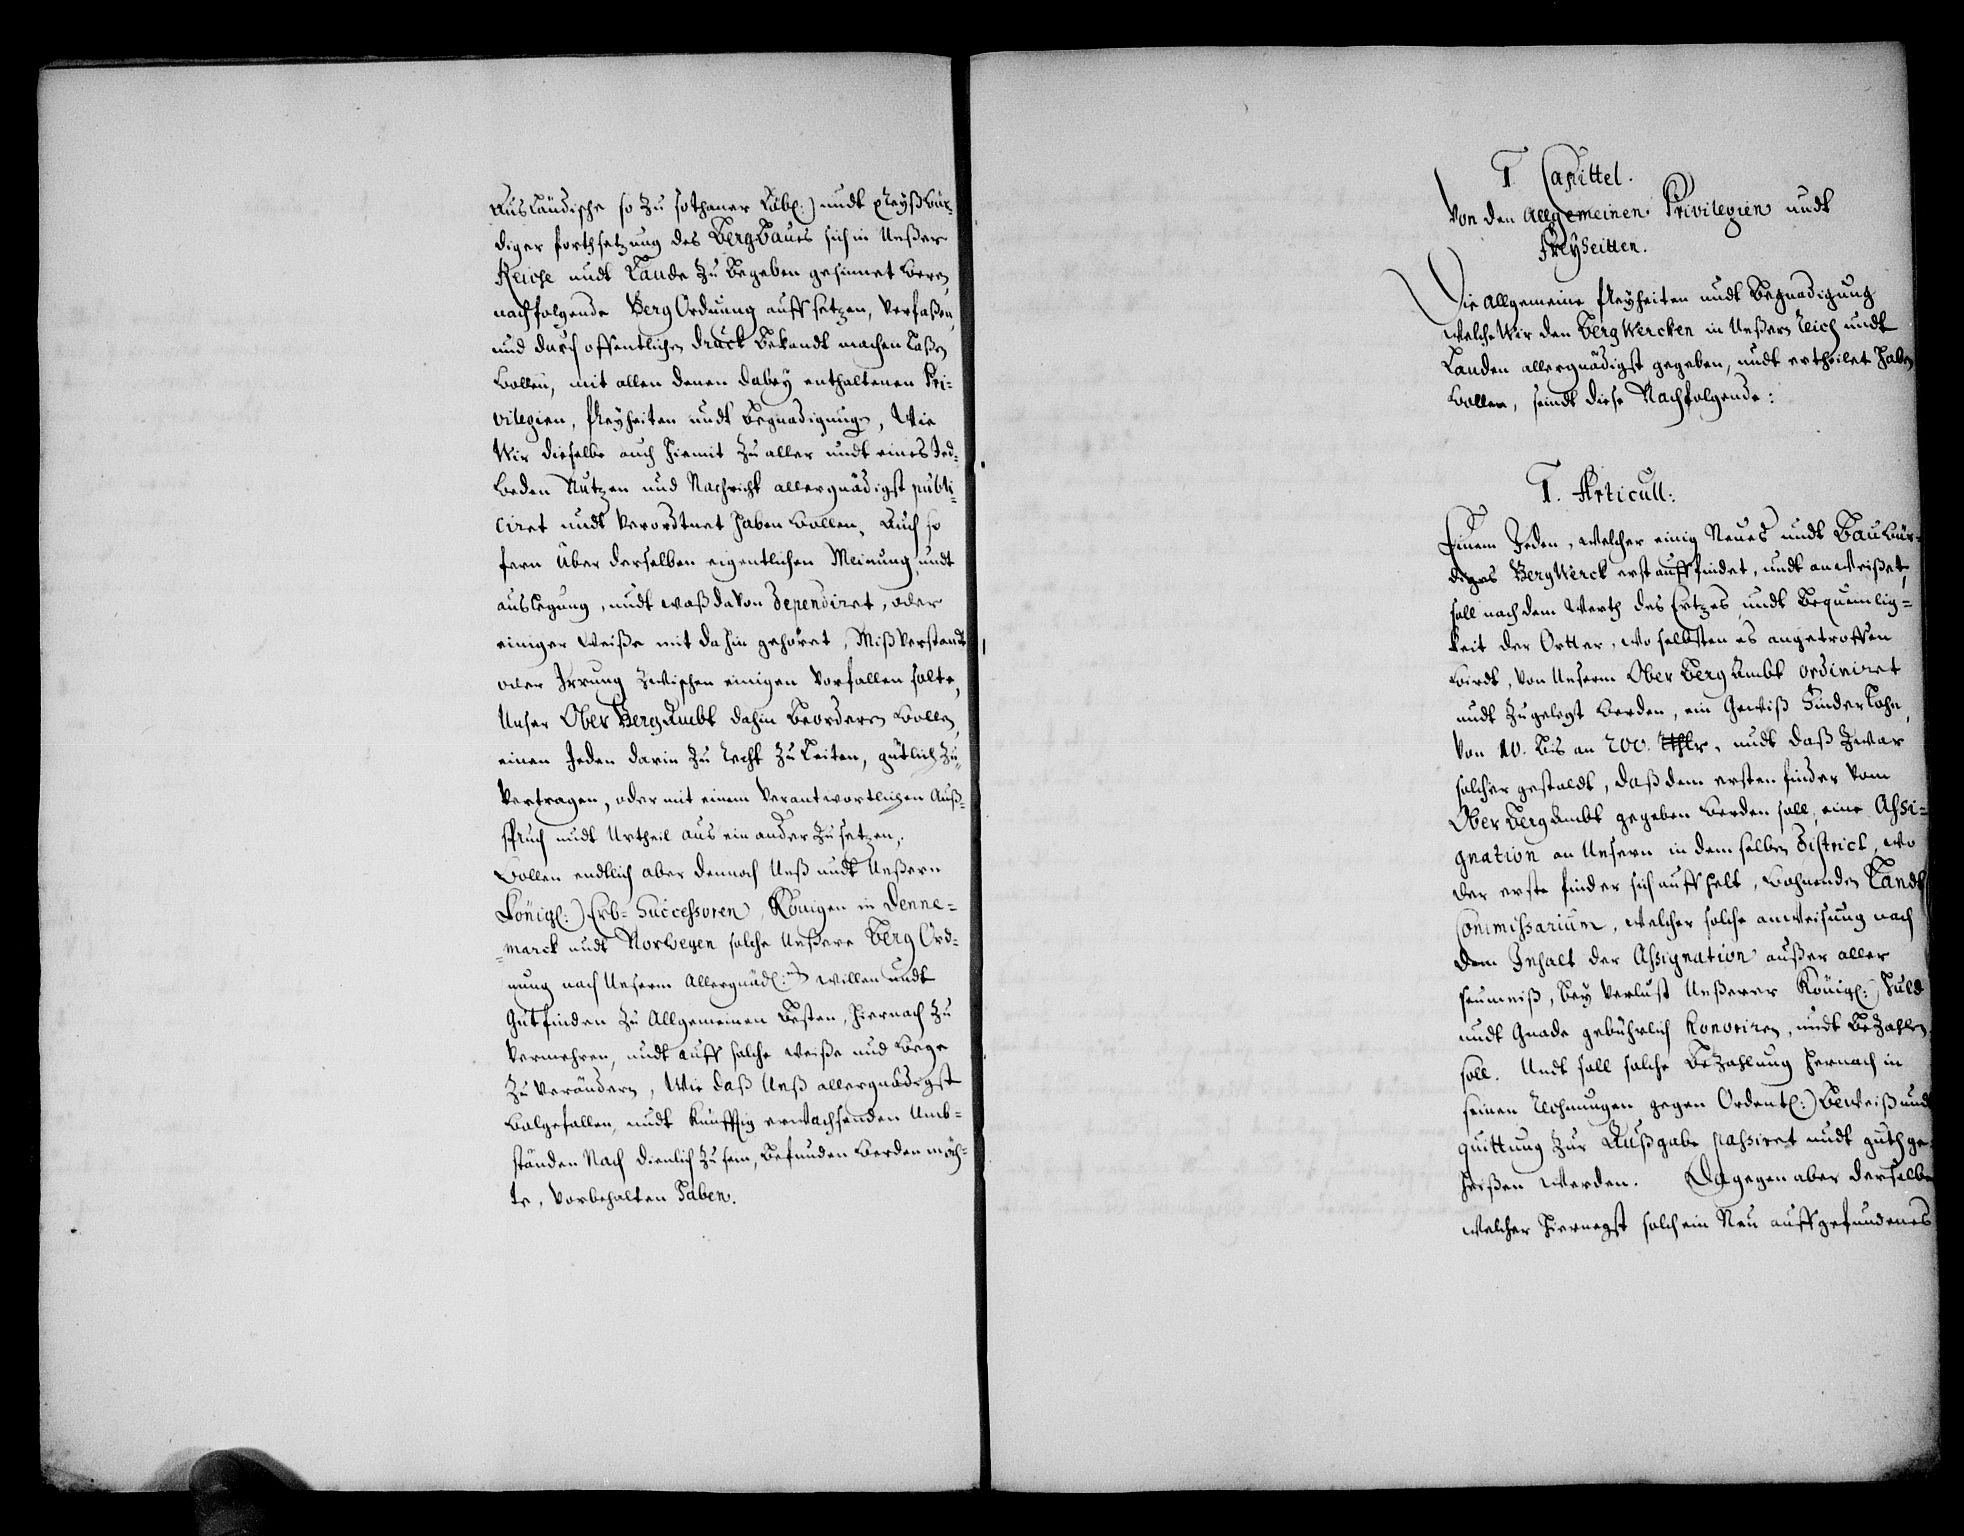 Ausländische so zu sothaner Löbl:) undt preyßwür-
diger forthsetzung des BergBaues sich in Unßer
Reiche undt Lande zu begeben gesinnet weren,
nachfolgende BergOrdnung auffsetzen, verfaßen,
und durch offentlichen druck bekandt machen laßen
wollen, mit allen denen dabey enthaltenen Pri-
vilegien, freyheiten undt begnadigungen, Wie
Wir dieselbe auch hiemit zu aller undt eines Jed-
weden Nutzen und Nachricht allergnädigst publi-
ciret undt verordtnet haben wollen, Auch so
fern über derselben eigentlichen Meinung, undt
auslegung, undt waß davon dependiret, oder
einiger weiße mit dahin gehöret, Mißverstandt
oder Irrung zwischen einigen vorfallen solte,
Unser Ober BergAmbt dahin beorderen wollen,
einen Jeden darin zu recht zu leiten, gütlich zu
vertragen, oder mit einem verantwortlichen Auß-
spruch undt Urtheil aus ein ander zu setzen,
wollen endtlich aber dennoch Unß undt Unßern
Königl:) Erb- Successoren, Königen in Denne-
marck undt Norwegen solche Unßere Berg Ord-
nung nach Unserm Allergnäd: willen undt
Gutfinden zu Allgemeinen besten, hiernach zu
vermehren, undt auff solche weiße und wege
zu verändern, Wie daß Unß allergnädigst
wolgefallen, undt künfftig erwachsenden Umb-
ständen Nach dienlich zu sein, befunden werden möch-
te, vorbehalten haben.
I. Capittel.
Von den Allgemeinen Privilegien undt
Freyheitten.
Die Allgemeine freyheiten undt Begnadigung
welche Wir den BergWercken in Unßern Reich undt
Landen allergnädigst gegeben, undt ertheilet haben
wollen, seindt diese Nachfolgende:
I. Articull:
Einem Jeden, welcher einig Neues undt Bauwür-
diges BergWerck erst auffindet, undt anweißet,
soll nach dem Werth des Ertzes, undt Bequemlig-
keit der Ortter, wo selbsten es angetroffen
wirdt, von Unserm Ober BergAmbt ordiniret
undt zugelegt werden, ein Gewiß Finderlohn,
von 10. biß an 200. Rthlr, undt daß zwar
solcher gestaldt, daß dem ersten finder vom
Ober BergAmbt gegeben werden soll, eine Assi-
gnation an Unsern in demselben District, wo
der erste finder sich auffhelt, wohnenden Landt
Commissarium, welcher solche anweisung nach
dem Inhalt der Assignation außer aller
seumniß, bey verlust Unßerer Königl: Huld
undt Gnade gebührlich honoriren, undt bezahlen
soll. Undt soll solche bezahlung hernach in
seinen Rechnungen gegen Ordentl:) beweiß undt
quittung zur Außgabe passiret undt guth ge-
heißen werden. Dagegen aber derselbe
welcher hiernegst solch ein Neu auffgefundenes